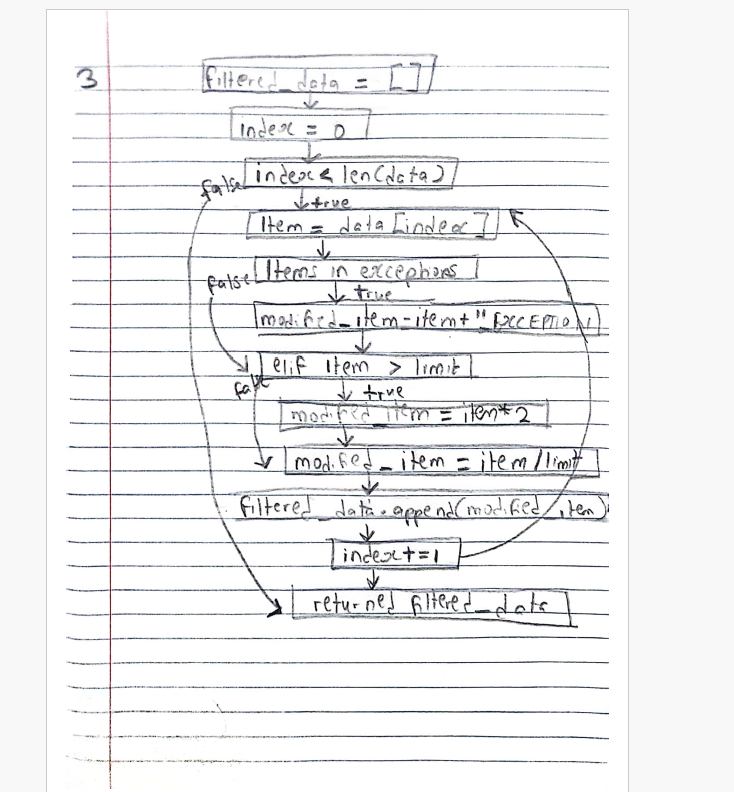 3
filtered_data = []
index = 0
index < len(data)
false
true
Item = data [index]
Items in exceptions
false
true
modified_item=item+"_EXCEPTION
elif item > limit
false
true
modified_item = item*2
modified_item = item/limit
filtered_data.append(modified_item)
index+=1
returned filtered_data